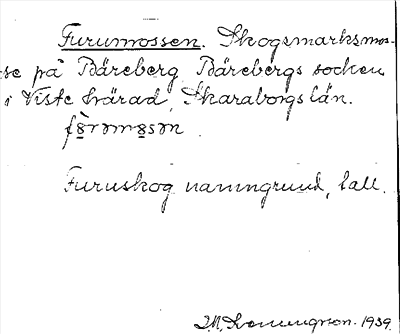 Furumossen. Skogsmarksmos-
se på Bäreberg Bärebergs socken
i Viste härad, Skaraborgs län.
Furuskog namngrund, tall.
1939.